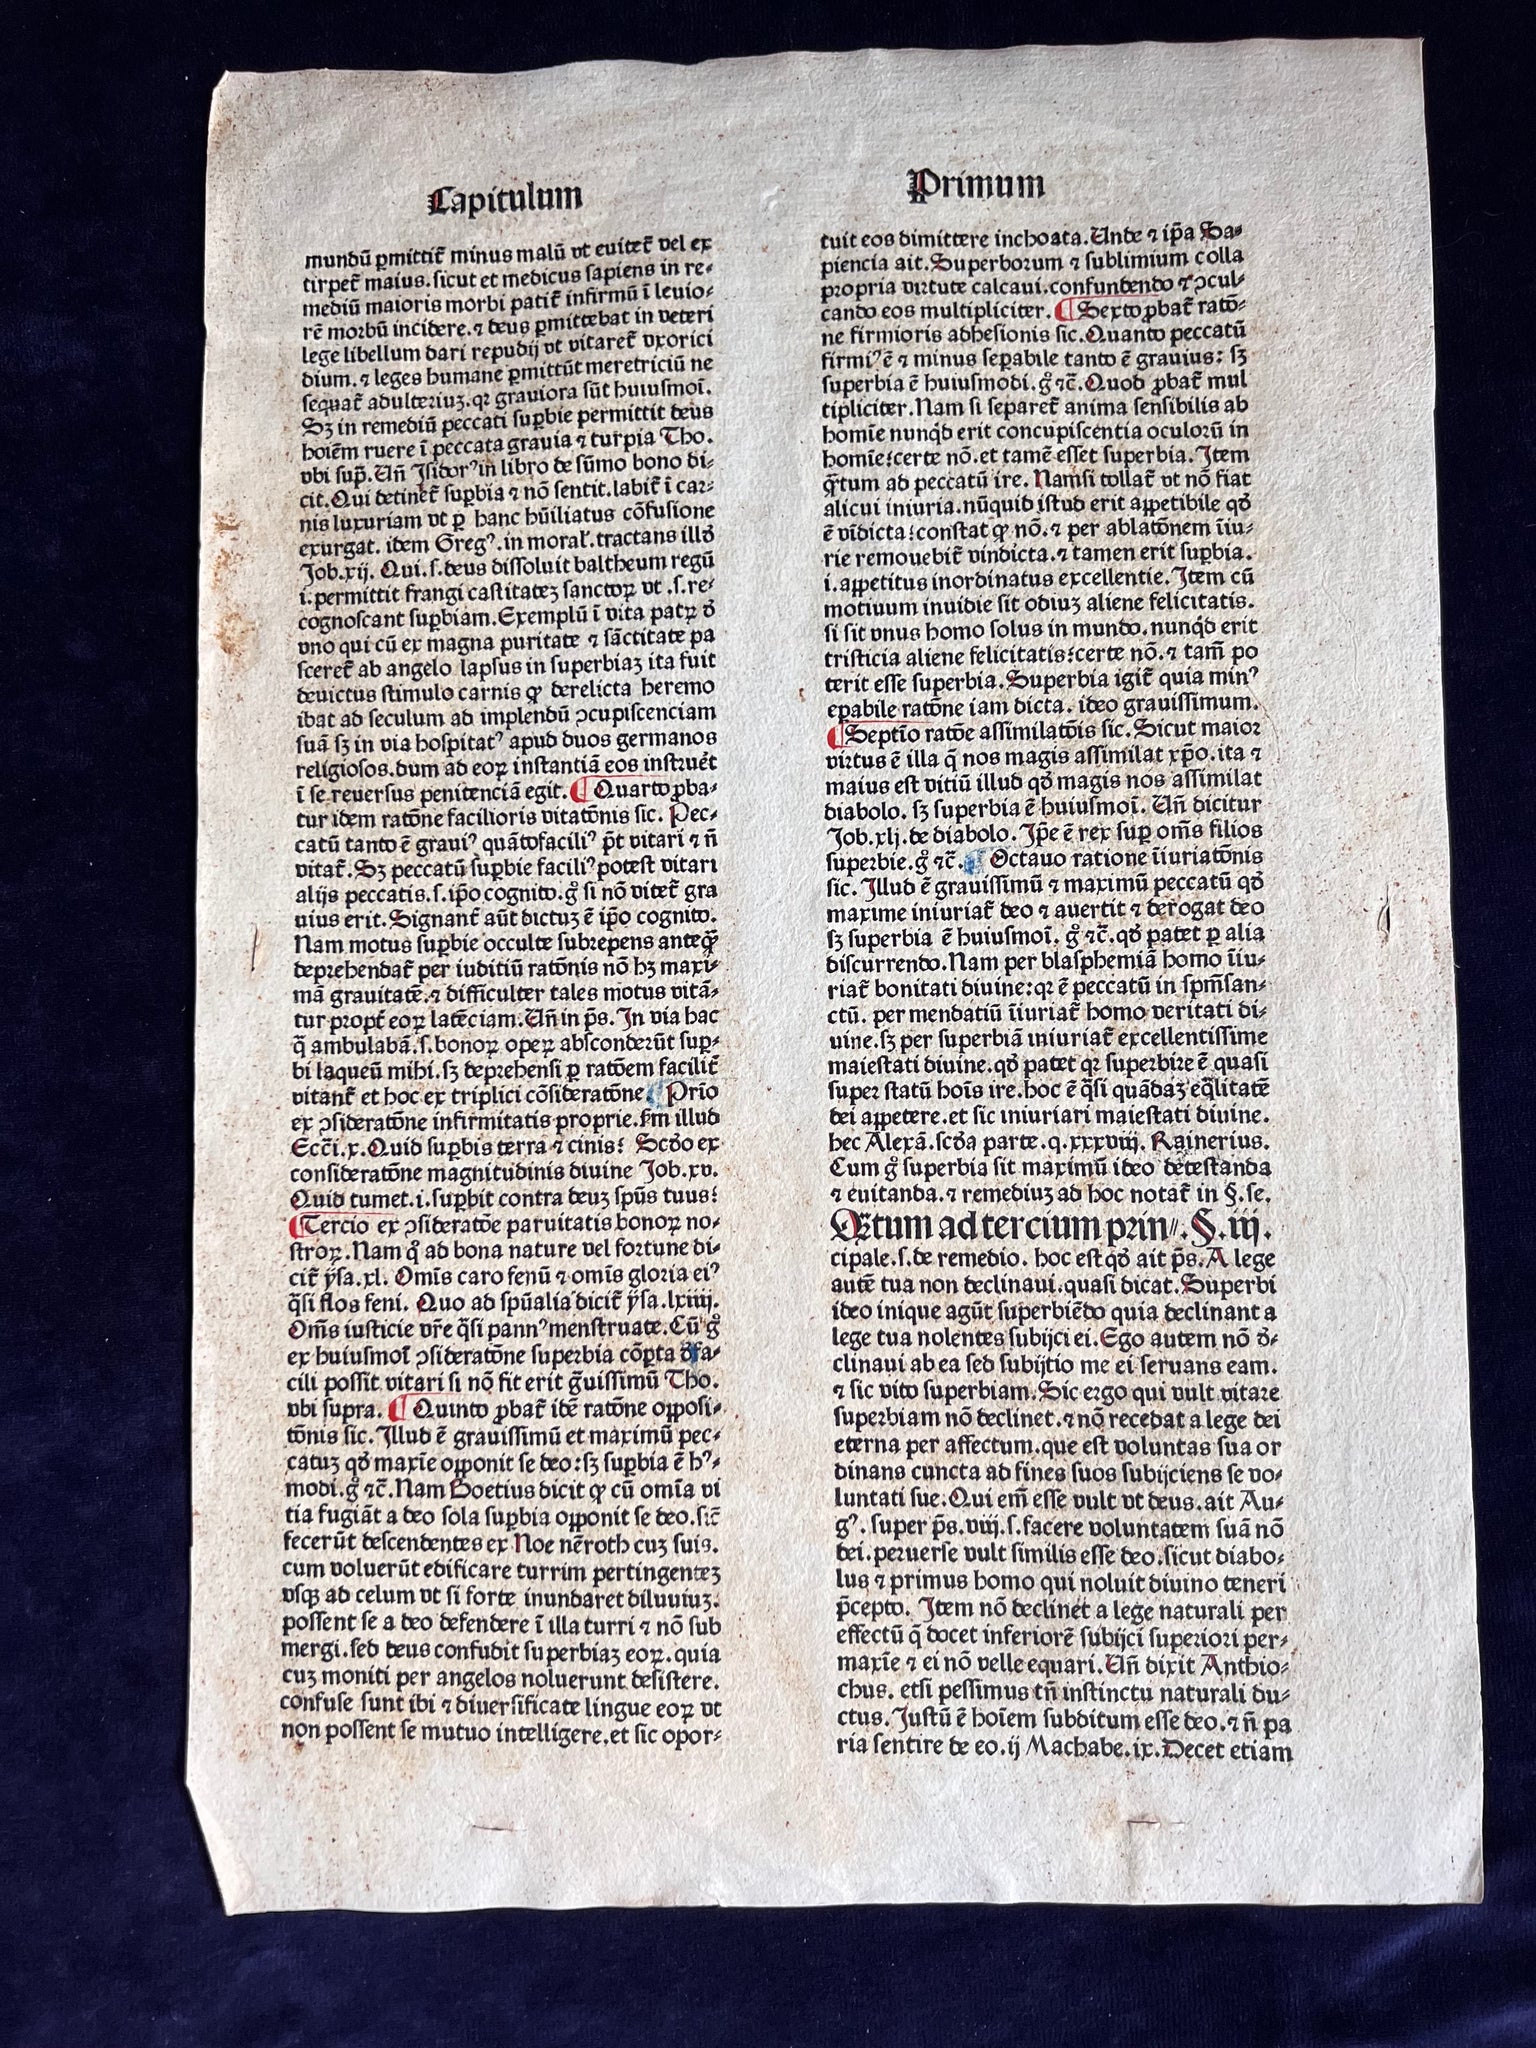 Capitulum
Primum
mundū ꝑmittit̄ minus malū vt euitet̄ vel ex
tirpet̄ maius. sicut et medicus sapiens in re⸗
mediū maioris morbi patit̄ infirmū ī leuio⸗
rē morbū incidere. ⁊ deus ꝑmittebat in veteri
lege libellum dari repudij vt vitaret̄ vxorici
dium. ⁊ leges humane ꝑmittūt meretriciū ne
sequat̄ adulteriuꝫ. qꝛ grauiora sūt huiusmoī.
Sꝫ in remediū peccati suꝑbie permittit deus
hoiēm ruere ī peccata grauia ⁊ turpia Tho.
vbi suꝑ. Un̄ Isidorꝰ in libro de sūmo bono di⸗
cit. Qui detinet̄ suꝑbia ⁊ nō sentit. labit̄ ī car⸗
nis luxuriam vt ꝑ hanc hūiliatus cōfusione
exurgat. idem Gregꝰ. in moral̓. tractans illd̓
Job.xij. Qui.s.deus dissoluit baltheum regū
i. permittit frangi castitateꝫ sanctoꝝ vt .s. re⸗
cognoscant suꝑbiam. Exemplū ī vita patꝝ d̓
vno qui cū ex magna puritate ⁊ sāctitate pa
sceret̄ ab angelo lapsus in superbiaꝫ ita fuit
deuictus stimulo carnis ꝙ derelicta heremo
ibat ad seculum ad implendū ↄcupiscenciam
suā sꝫ in via hospitatꝰ apud duos germanos
religiosos. dum ad eoꝝ instantiā eos instruēt
ī se reuersus penitenciā egit. ¶ Quarto ꝓba⸗
tur idem ratōne facilioris vitatōnis sic. Pec⸗
catū tanto ē grauiꝰ quātofaciliꝰ p̄t vitari ⁊ n̄
vitat̄. Sꝫ peccatū suꝑbie faciliꝰ potest vitari
alijs peccatis. s. ip̄o cognito. g̊ si nō vitet̄ gra
uius erit. Signant̄ aūt dictuꝫ ē ip̄o cognito.
Nam motus suꝑbie occulte subrepens anteꝙ̄
deprehendat̄ per iuditiū ratōnis nō hꝫ maxi⸗
mā grauitatē. ⁊ difficulter tales motus vitā⸗
tur propt̄ eoꝝ latēciam. Un̄ in p̄s. In via hac
q̄ ambulabā. s. bonoꝝ opeꝝ absconderūt suꝑ⸗
bi laqueū mihi. sꝫ deprehensi ꝑ ratōem facilit̄
vitant̄ et hoc ex triplici cōsideratōne ¶ Prīo
ex ↄsideratōne infirmitatis proprie. ẜm illud
Ecc̄i. x. Quid suꝑbis terra ⁊ cinis? Scd̓o ex
consideratōne magnitudinis diuine Job. xv.
Quid tumet. i. suꝑbit contra deuꝫ sp̄us tuus?
¶ Tercio ex ↄsideratōe paruitatis bonoꝝ no⸗
stroꝝ. Nam q̊ ad bona nature vel fortune di⸗
cit̄ ẏsa. xl. Omīs caro fenū ⁊ omīs gloria eiꝰ
q̄si flos feni. Quo ad sp̄ualia dicit̄ ẏsa. lxiiij.
Om̄s iusticie vr̄e q̄si pannꝰ menstruate. Cū g̊
ex huiusmoī ↄsideratōne superbia cōꝑta d̓fa⸗
cili possit vitari si nō fit erit ḡuissimū Tho.
vbi supra. ¶ Quinto ꝓbat̄ idē ratōne opposi⸗
tōnis sic. Illud ē grauissimū et maximū pec⸗
catuꝫ qd̓ maxīe opponit se deo: sꝫ suꝑbia ē hꝰ⸗
modi. g̊ ⁊c̄. Nam Boetius dicit ꝙ cū omīa vi
tia fugiāt a deo sola suꝑbia opponit se deo. sic̄
fecerūt descendentes ex Noe nēroth cuꝫ suis.
cum voluerūt edificare turrim pertingenteꝫ
vsqꝫ ad celum vt si forte inundaret diluuiuꝫ.
possent se a deo defendere ī illa turri ⁊ nō sub
mergi. sed deus confudit superbiaꝫ eoꝝ. quia
cuꝫ moniti per angelos noluerunt desistere.
confuse sunt ibi ⁊ diuersificate lingue eoꝝ vt
non possent se mutuo intelligere. et sic opor⸗
tuit eos dimittere inchoata. Unde ⁊ ip̄a Sa⸗
piencia ait. Superborum ⁊ sublimium colla
propria virtute calcaui. confundendo ⁊ ↄcul⸗
cando eos multipliciter. ¶ Sexto ꝓbat̄ ratō⸗
ne firmioris adhesionis sic. Quanto peccatū
firmiꝰ ē ⁊ minus seꝑabile tanto ē grauius: sꝫ
superbia ē huiusmodi. g̊ ⁊c̄. Quod ꝓbat̄ mul
tipliciter. Nam si separet̄ anima sensibilis ab
homīe nunqd̓ erit concupiscentia oculorū in
homīe: certe nō. et tamē esset superbia. Item
q̄tum ad peccatū ire. Nam si tollat̄ vt nō fiat
alicui iniuria. nūquid istud erit appetibile qd̓
ē vīdicta: constat ꝙ nō. ⁊ per ablatōnem īiu⸗
rie remouebit̄ vindicta. ⁊ tamen erit suꝑbia.
i. appetitus inordinatus excellentie. Item cū
motiuum inuidie sit odiuꝫ aliene felicitatis.
si sit vnus homo solus in mundo. nunqd̓ erit
tristicia aliene felicitatis: certe nō. ⁊ tam̄ po
terit esse superbia. Superbia igit̄ quia minꝰ
eꝑabile ratōne iam dicta. ideo grauissimum.
¶ Septīo ratōe assimilatōis sic. Sicut maior
virtus ē illa q̄ nos magis assimilat xp̄o. ita ⁊
maius est vitiū illud qd̓ magis nos assimilat
diabolo. sꝫ superbia ē huiusmoī. Un̄ dicitur
Job. xlj. de diabolo. Ip̄e ē rex suꝑ om̄s filios
superbie. g̊ ⁊c̄. ¶ Octauo ratione īiuriatōnis
sic. Illud ē grauissimū ⁊ maximū peccatū qd̓
maxime iniuriat̄ deo ⁊ auertit ⁊ derogat deo
sꝫ superbia ē huiusmoī. g̊ ⁊c̄. qd̓ patet ꝑ alia
discurrendo. Nam per blasphemiā homo īiu⸗
riat̄ bonitati diuine: qꝛ ē peccatū in sp̄m̄san⸗
ctū. per mendatiū īiuriat̄ homo veritati di⸗
uine. sꝫ per superbiā iniuriat̄ excellentissime
maiestati diuine. qd̓ patet qꝛ superbire ē quasi
super statū hoīs ire. hoc ē q̄si quādaꝫ eq̄litatē
dei appetere. et sic iniuriari maiestati diuine.
hec Alexā. scd̓a parte. q. xxxviij. Rainerius.
Cum g̊ superbia sit maximū ideo detestanda
⁊ euitanda. ⁊ remediuꝫ ad hoc notat̄ in §. se.
Qꝛtum ad tercium prin⸗. §. iij.
cipale. s. de remedio. hoc est qd̓ ait p̄s. A lege
autē tua non declinaui. quasi dicat. Superbi
ideo inique agūt superbiēdo quia declinant a
lege tua nolentes subijci ei. Ego autem nō d̓⸗
clinaui ab ea sed subijtio me ei seruans eam.
⁊ sic vito superbiam. Sic ergo qui vult vitare
superbiam nō declinet. ⁊ nō recedat a lege dei
eterna per affectum. que est voluntas sua or
dinans cuncta ad fines suos subijciens se vo⸗
luntati sue. Qui em̄ esse vult vt deus. ait Au⸗
gꝰ. super p̄s. viij. s. facere voluntatem suā nō
dei. peruerse vult similis esse deo. sicut diabo⸗
lus ⁊ primus homo qui noluit diuino teneri
p̄cepto. Item nō declinet a lege naturali per
effectū q̄ docet inferiorē subijci superiori per⸗
maxīe ⁊ ei nō velle equari. Un̄ dixit Anthio⸗
chus. etsi pessimus tn̄ instinctu naturali du⸗
ctus. Justū ē hoīem subditum esse deo. ⁊ n̄ pa
ria sentire de eo. ij Machabe. ix. Decet etiam